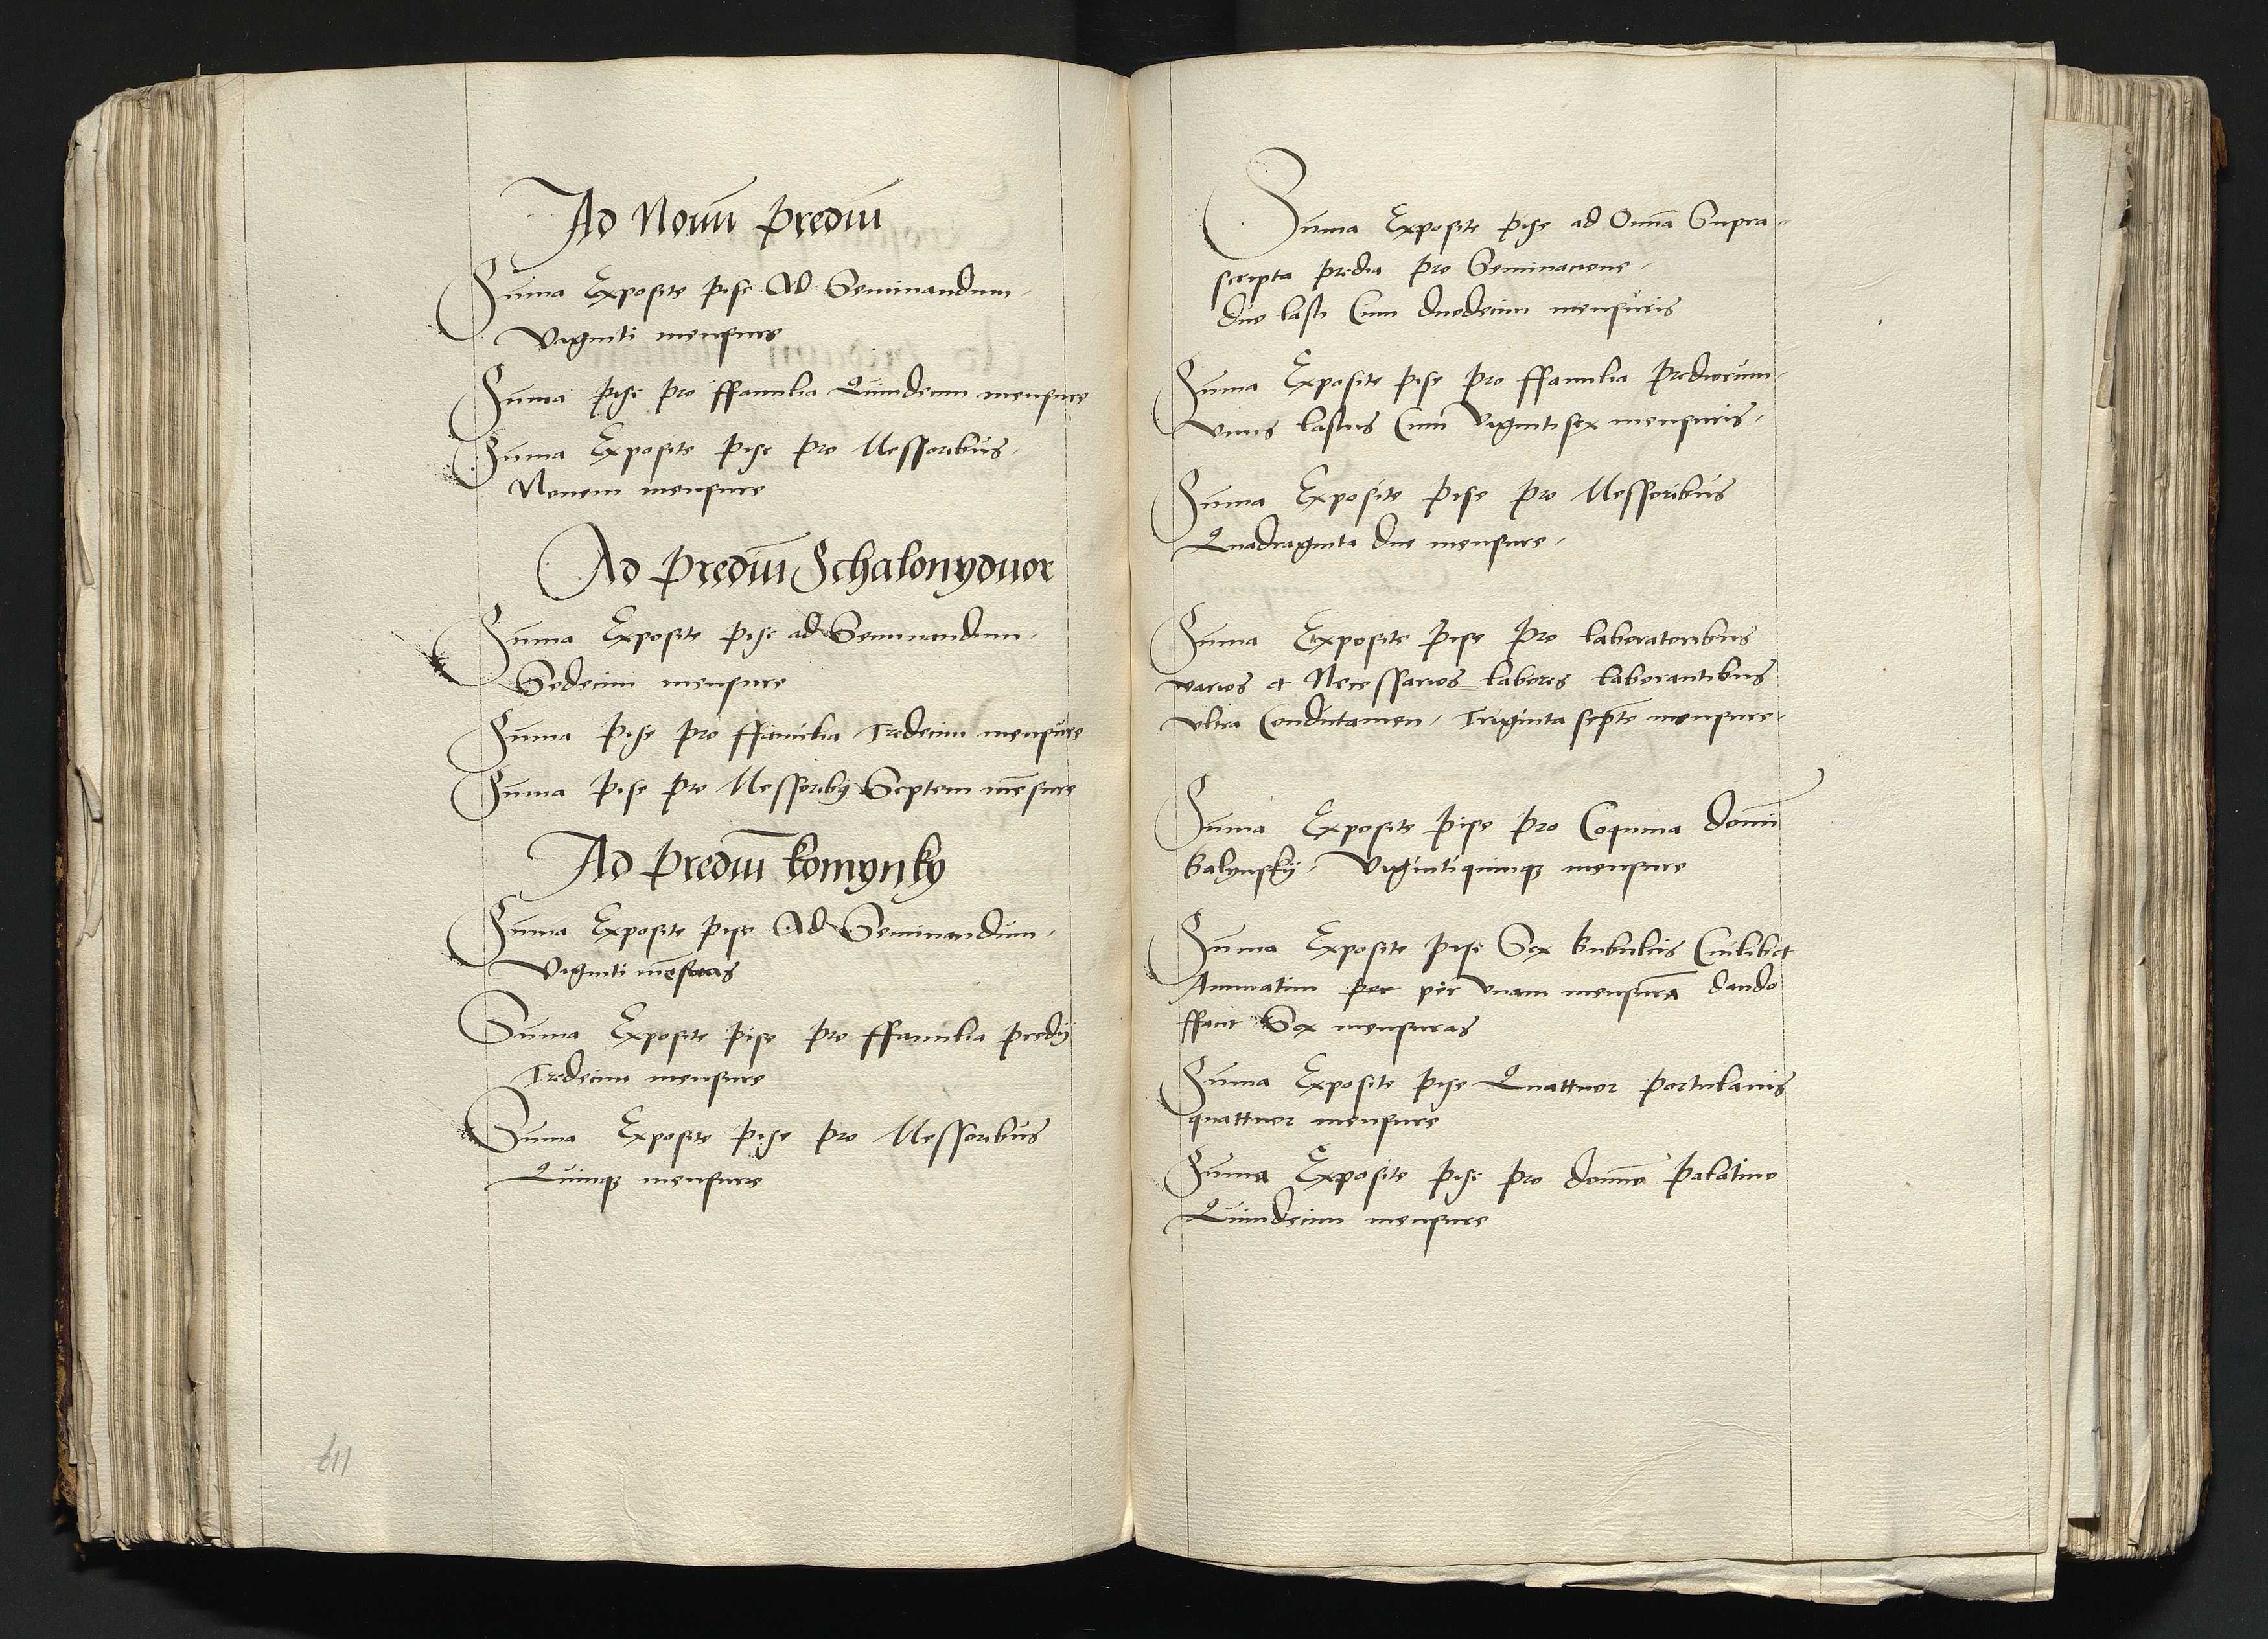 Ad Nouū predīu
Suma Exposite pise Ad Seminandum
Viginti mensure
Suma pise pro ffamilia Quindecim mensure
Suma Exposite pise pro Messoribus
Nouem mensure
Ad predīu Schalonyduor
Suma Exposite pise ad Seminandum
Sedecim mensure
Suma pise pro ffamilia Tredecim mensure
Suma pise pro Messoribȝ Septem mēsure
Ad predīu komynky
Suma Exposite pise Ad Seminandum
Viginti mēsuras
Suma Exposite pise pro ffamilia predij
Tredecim mensure
Suma Exposite pise pro Messoribus
Quinqȝ mensure
117
Suma Exposite pise ad Omīa Supra-
scripta predia pro Seminacione
due lasti Cum duodecim mensuris
Suma Exposite pise pro ffamilia prediorum
Vnus lastus Cum Vigintisex mensuris
Suma Exposite pise pro Messoribus
Quadraginta due mensure
Suma Exposite pise pro laboratoribus
varios et Necessarios labores laborantibus
vltra Condictamen, Triginta septē mensure
Suma Exposite pise pro Coquina domī
Galynskÿ, Vigintiquinqȝ mensure
Suma Exposite pise Sex bubulcis Cuilibet
Annuatim per per vnam mensurā dando
ffacit Sex mensuras
Suma Exposite pise Quattuor portulanis
quattuor mensure
Suma Exposite pise pro domīo palatino
Quindecim mensure